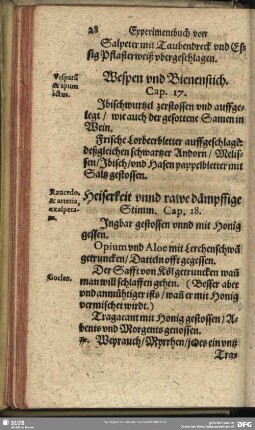 28 Experimentbuch von
Salpeter mit Taubendreck vnd Es-
sig Pflasterweiß vbergeschlagen.
Vesparũ
& apum
ictus.
Wespen vnd Bienenstich.
Cap. 17.
Ibischwurtzel zerstossen vnd auffge-
legt / wie auch der gesottene Samen in
Wein.
Frische Lorbeerbletter auffgeschlagẽ:
deßgleichen schwartzer Andorn / Melis-
sen / Ibisch / vnd Hasen pappelbletter mit
Saltz gestossen.
Raucedo,
& arteria,
exaspera-
Heiserkeit vnnd rawe dämpffige
Stimm. Cap. 18.
Ingbar gestossen vnnd mit Honig
gessen.
Opium vnd Aloe mit Lerchenschwã
getruncken / Datteln offt gegessen.
Der Safft von Köl getruncken wañ
man will schlaffen gehen. (Besser aber
vnd annühtiger ists / wañ er mit Honig
vermischet wirdt.)
Tragacant mit Honig gestossen / A-
bents vnd Morgents genossen.
Weyrauch / Myrrhen / jedes ein vntz
Tra-
SLUB
DFG